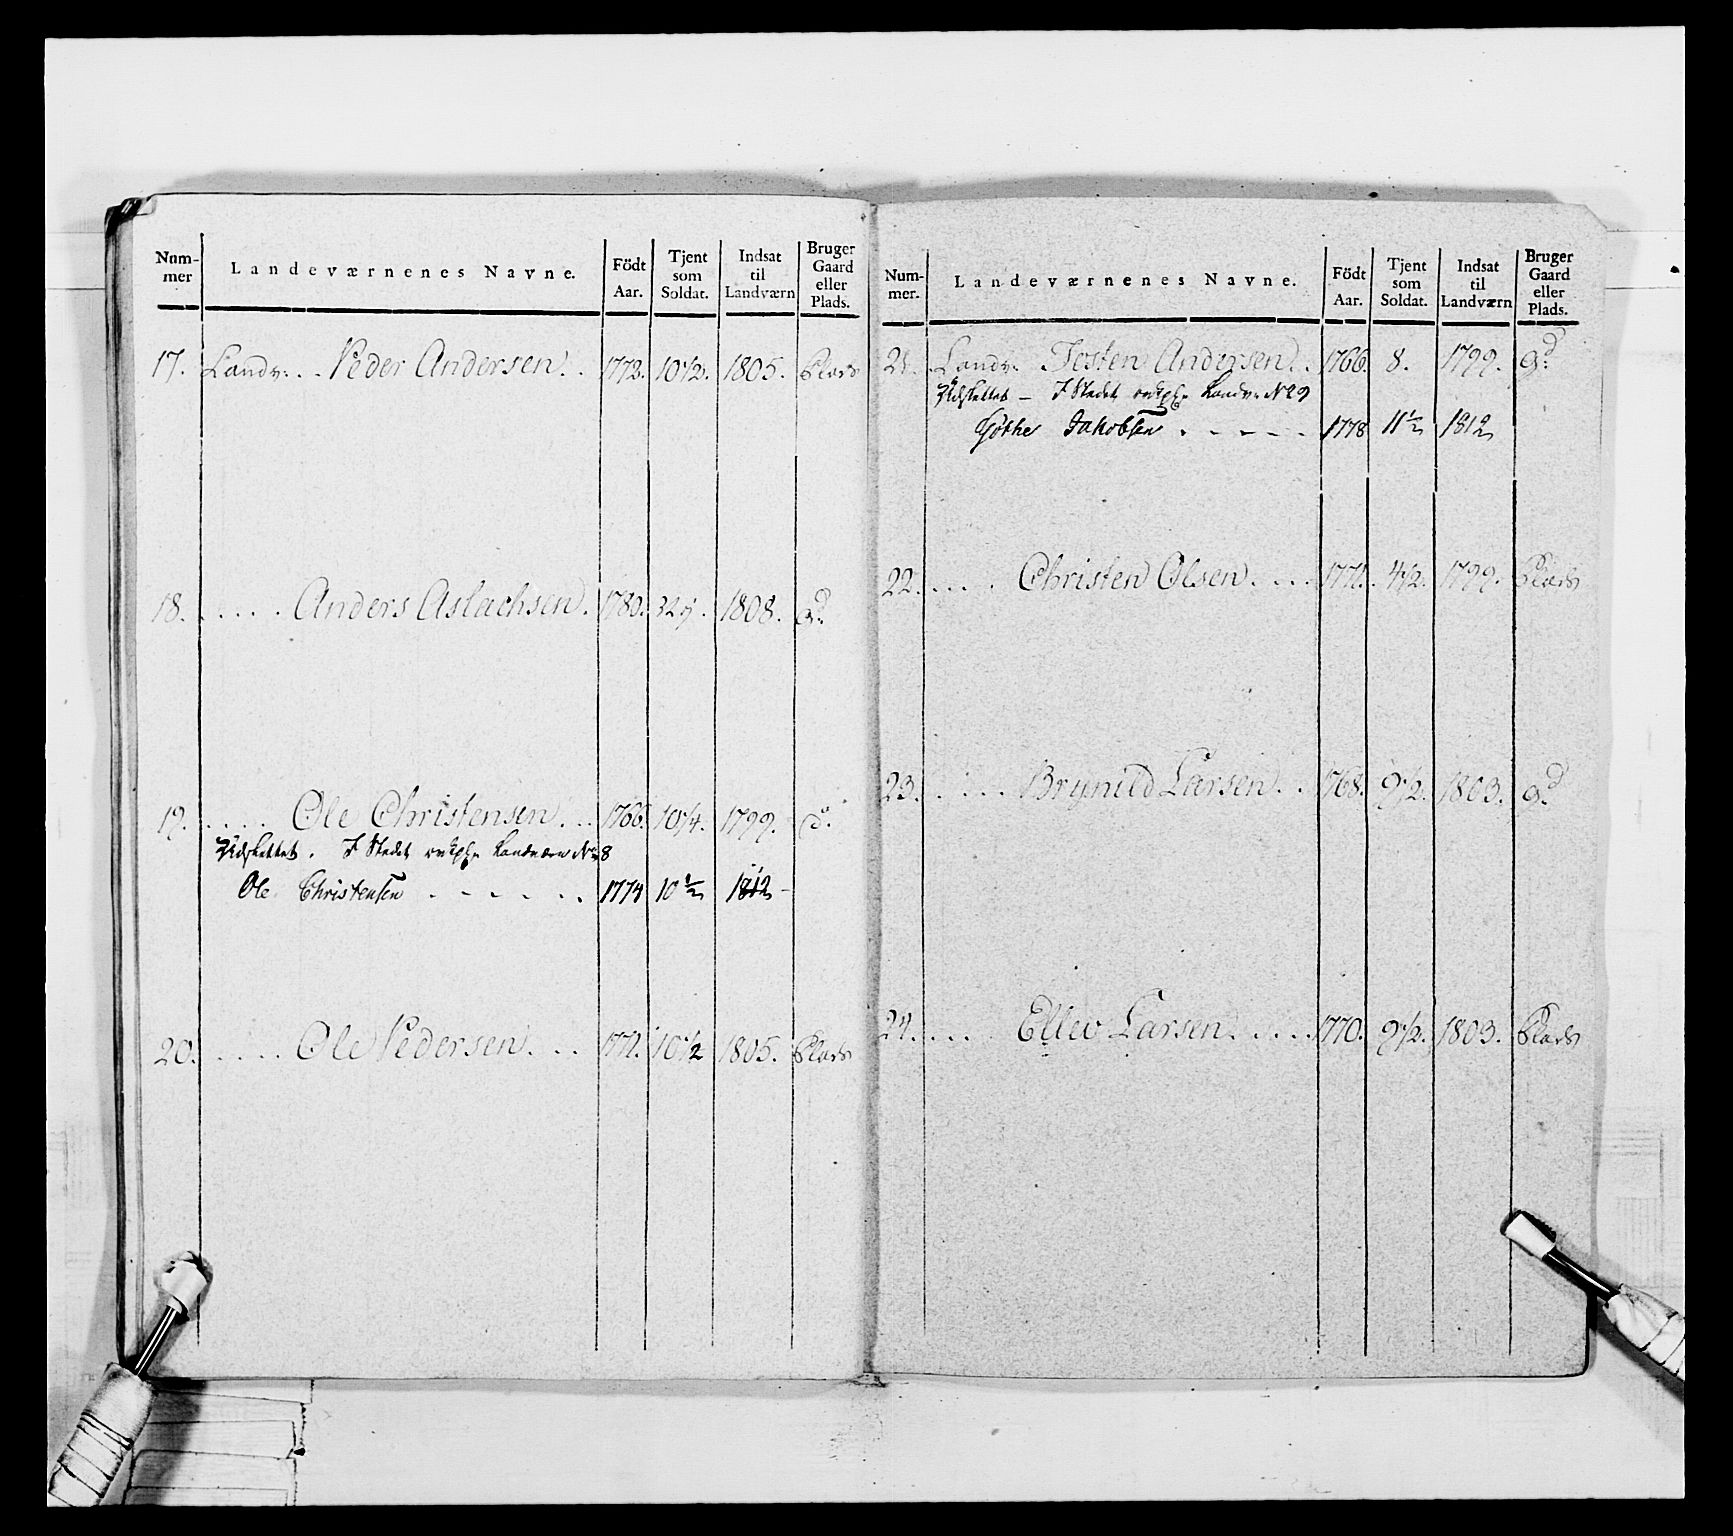 Num-
mer
Landeværnenes Navne.
Födt
Aar.
Tjent
som
Soldat.
Indsat
til
Landværn
Bruger
Gaard
eller
Plads.
17. Landv. . . Peder Andersen. . 1773. 10 1/2. 1805. Plads
18. . . . . Anders Aslachsen. 1780. 1808. Gd.
19. . . . . Ole Christensen. . . 1766. 10 1/4. 1799. do.
Udslettet. I Stedet Landværn No 8
Ole Christensen . - - - - . 1774 10 1/2 1812 -
20. . . . . Ole Pedersen. . . 1771. 10 1/2 1805. Plads
Num-
mer.
Landeværnenes Navne.
Födt
Aar.
Tjent
som
Soldat.
Indsat
til
Landværn
Bruger
Gaard
eller
Plads.
21. Landv. Testen Andersen. . 1766. 8. 1799. Gd.
Udslettet - I Stedet Landv. No 9
Göthe Jakobsen . - - - . 1778 11 1/2 1812
22. . . . Christen Olsen. . . . 1771. 4 1/2. 1799. Plads
23. . . . . Brynild Larsen. . . 1768. 9 1/2. 1803. Gd.
24. . . . Ellev Larsen. . . . 1770. 9 1/2. 1803. Plads